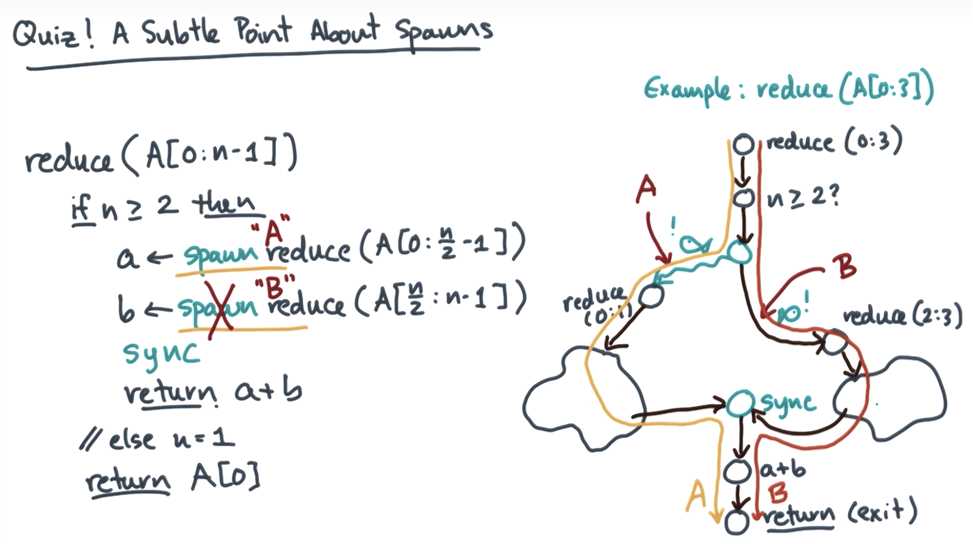 Quiz! A Subtle Point About Spawns
reduce(A[0:n-1])
if n ≥ 2 then
"A"
a ← spawn reduce(A[0:n/2-1])
"B"
b ← spawn reduce(A[n/2:n-1])
sync
return a+b
// else n=1
return A[0]
Example: reduce(A[0:3])
reduce (0:3)
n ≥ 2?
A
!
B
!
reduce
(0:1)
reduce (2:3)
sync
a+b
A
B
return (exit)